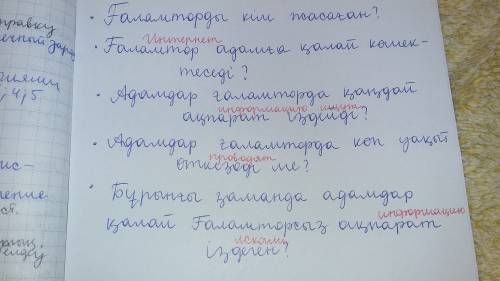 правку
ечный заряд
4,5.
ис-
ление
ся.
• Ғаламторды кім жасаған?
Интернет
• Ғаламтор адамға қалай көмек-
теседі?
• Адамдар ғаламторда қандай
информацию ищут
ақпарат іздейді?
• Адамдар ғаламторда көп уақыт
проводят
өткізеді ме?
• Бұрынғы заманда адамдар
қалай Ғаламторсыз ақпарат
информацию
искали
іздеген?